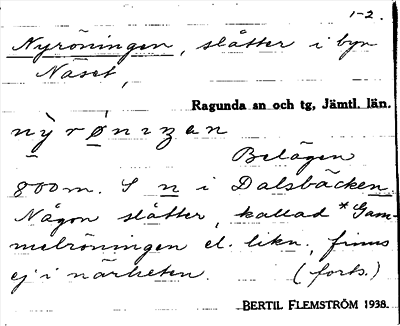 1-2.
Nyröningen, slåtter i byn
Näset,
Ragunda sn och tg, Jämtl. län.
Belägen
800 m. S n i Dalsbäcken.
Någon slåtter, kallad *Gam-
melröningen el. likn., finns
ej i närheten. (forts.)
BERTIL FLEMSTRÖM 1938.